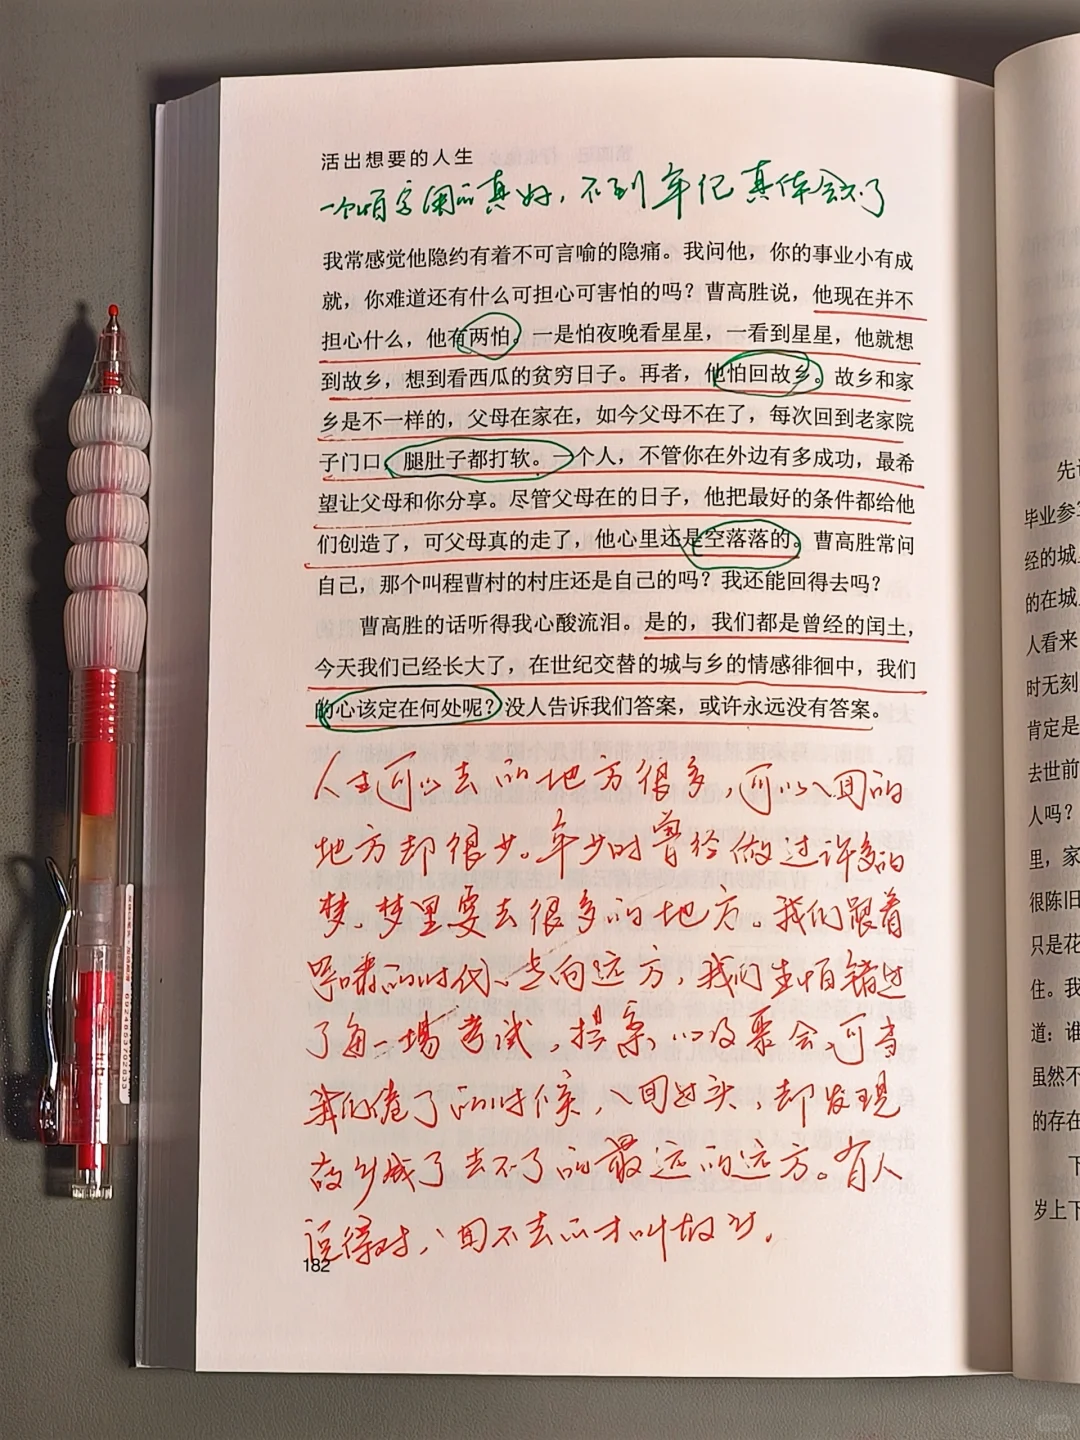 活出想要的人生
一个怕字用的真好，不到年纪真体会不了
我常感觉他隐约有着不可言喻的隐痛。我问他，你的事业小有成
就，你难道还有什么可担心可害怕的吗？曹高胜说，他现在并不
担心什么，他有两怕。一是怕夜晚看星星，一看到星星，他就想
到故乡，想到看西瓜的贫穷日子。再者，他怕回故乡。故乡和家
乡是不一样的，父母在家在，如今父母不在了，每次回到老家院
子门口，腿肚子都打软。一个人，不管你在外边有多成功，最希
望让父母和你分享。尽管父母在的日子，他把最好的条件都给他
们创造了，可父母真的走了，他心里还是空落落的。曹高胜常问
自己，那个叫程曹村的村庄还是自己的吗？我还能回得去吗？
曹高胜的话听得我心酸流泪。是的，我们都是曾经的闰土，
今天我们已经长大了，在世纪交替的城与乡的情感徘徊中，我们
的心该定在何处呢？没人告诉我们答案，或许永远没有答案。
人生可以去的地方很多，可以回的
地方却很少。年少时曾经做过许多的
梦。梦里要去很多的地方。我们跟着
呼啸的时代，走向远方，我们生怕错过
了每一场考试，提案以及聚会，可当
我们倦了的时候，回过头，却发现
故乡成了去不了的最远的远方。有人
说得对，回不去的才叫故乡。
182
先
毕业参
经的城
的在城
人看来
时无刻
肯定是
去世前
人吗？
里，家
很陈旧
只是花
住。我
道：谁
虽然不
的存在
下
岁上下
6924853702833